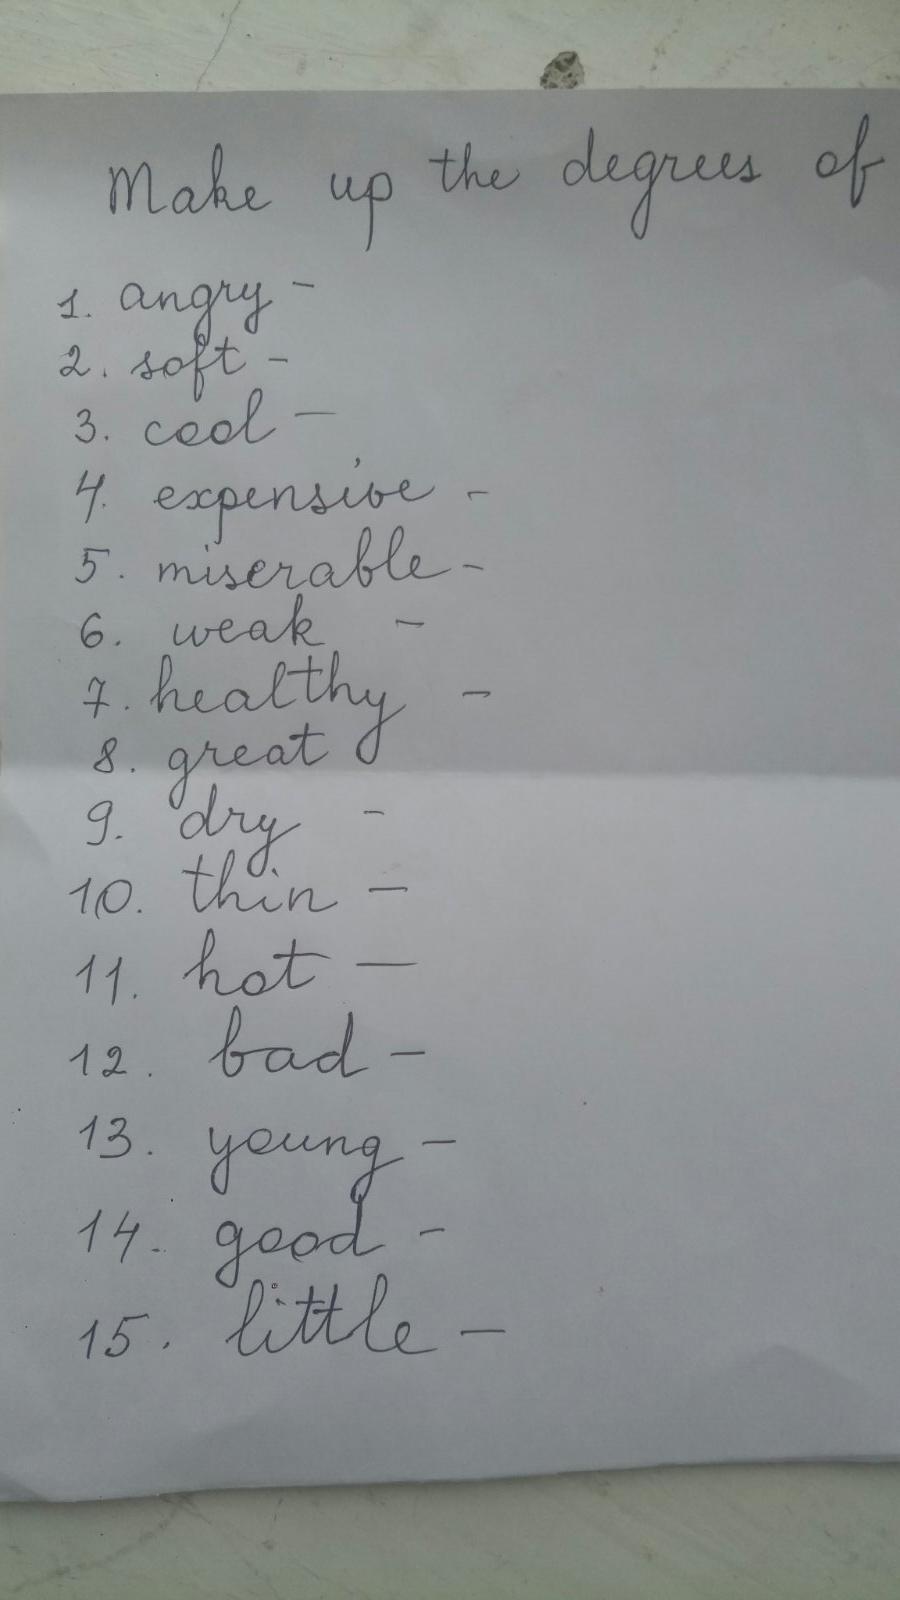 Make up the degrees of
1. angry -
2. soft -
3. cool -
4. expensive -
5. miserable -
6. weak -
7. healthy -
8. great
9. dry -
10. thin -
11. hot -
12. bad -
13. young -
14. good -
15. little -